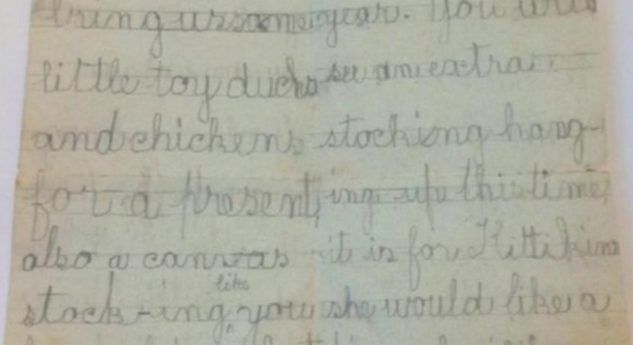 bring us some year. You will
little toy ducks see an extra
and chickens stocking hang-
for a present, ing up this time,
also a canvas it is for Kitti
like
stock-ing you she would like a